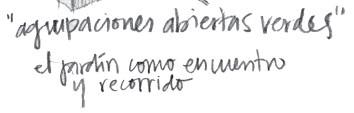 "agrupaciones abiertas verdes"
el jardín como encuentro
y recorrido